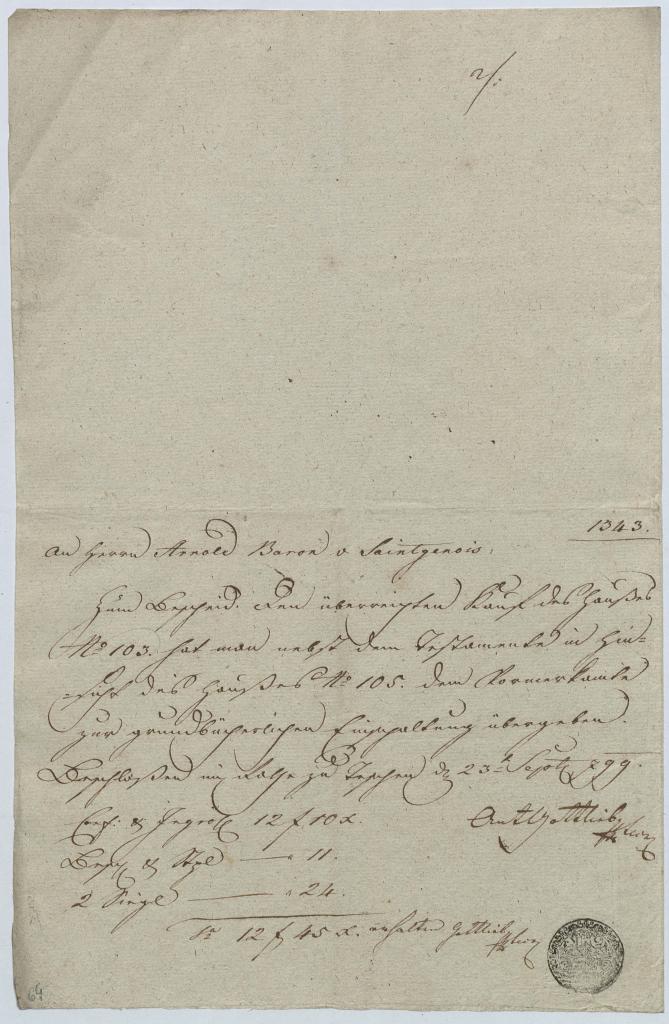 2/:
1343.
An Herrn Arnold Baron v Saintgenois.
Zum Bescheid. Den überreichten Kauf des Haußes
No 103. hat man nebst dem Testamente in Hin-
-sicht des Haußes No 105. dem Vormerkamte
zur grundbücherlichen Einschaltung übergeben.
Beschloßen im Rathe zu Teschen d 23t Sept 799.
Conf: & Ingross 12 f 10 x.
Ant Gottlieb
Besch & Stpl — " 11.
2 Siegl — " 24.
Sa 12 f 45 x. erhalten Gottlieb
64